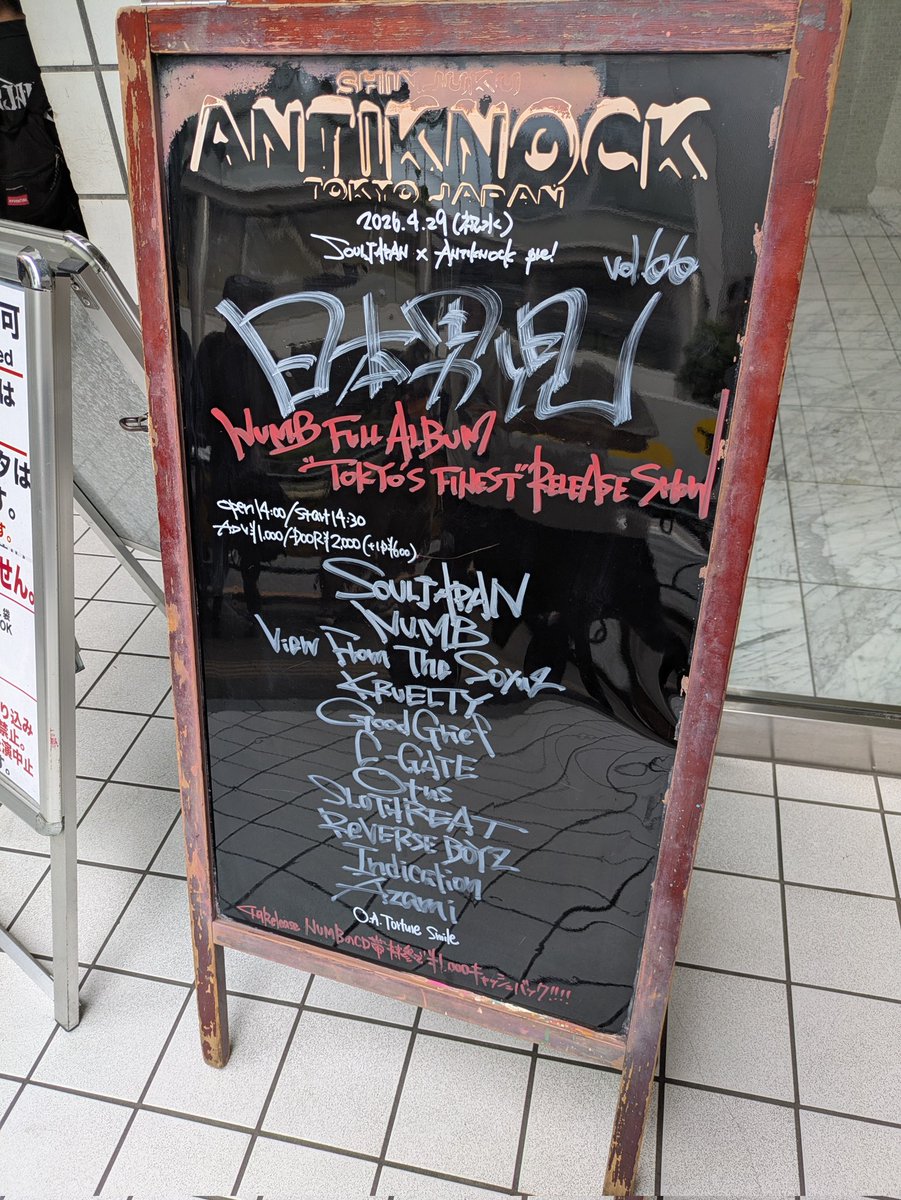 SHINJUKU
ANTIKNOCK
TOKYO JAPAN
2026.4.29(祝水)
SOULJAPAN × ANTIKNOCK pre!
vol.66
日本男児
NUMB FULL ALBUM
"TOKYO'S FINEST" RELEASE SHOW
open14:00/start14:30
ADV¥1,000/DOOR¥2,000(+1D¥600)
SOULJAPAN
NUMB
View From The Soyuz
KRUELTY
Good Grief
C-GATE
Otus
SLOTHREAT
ReVERSE BOYZ
Indication
Azami
O.A.Torture Smile
NUMBのCD
¥1,000キャッシュバック!!!!
可
ed
は
タは
す。
せん。
袋
OK
り込み
禁止。
演中止
す。